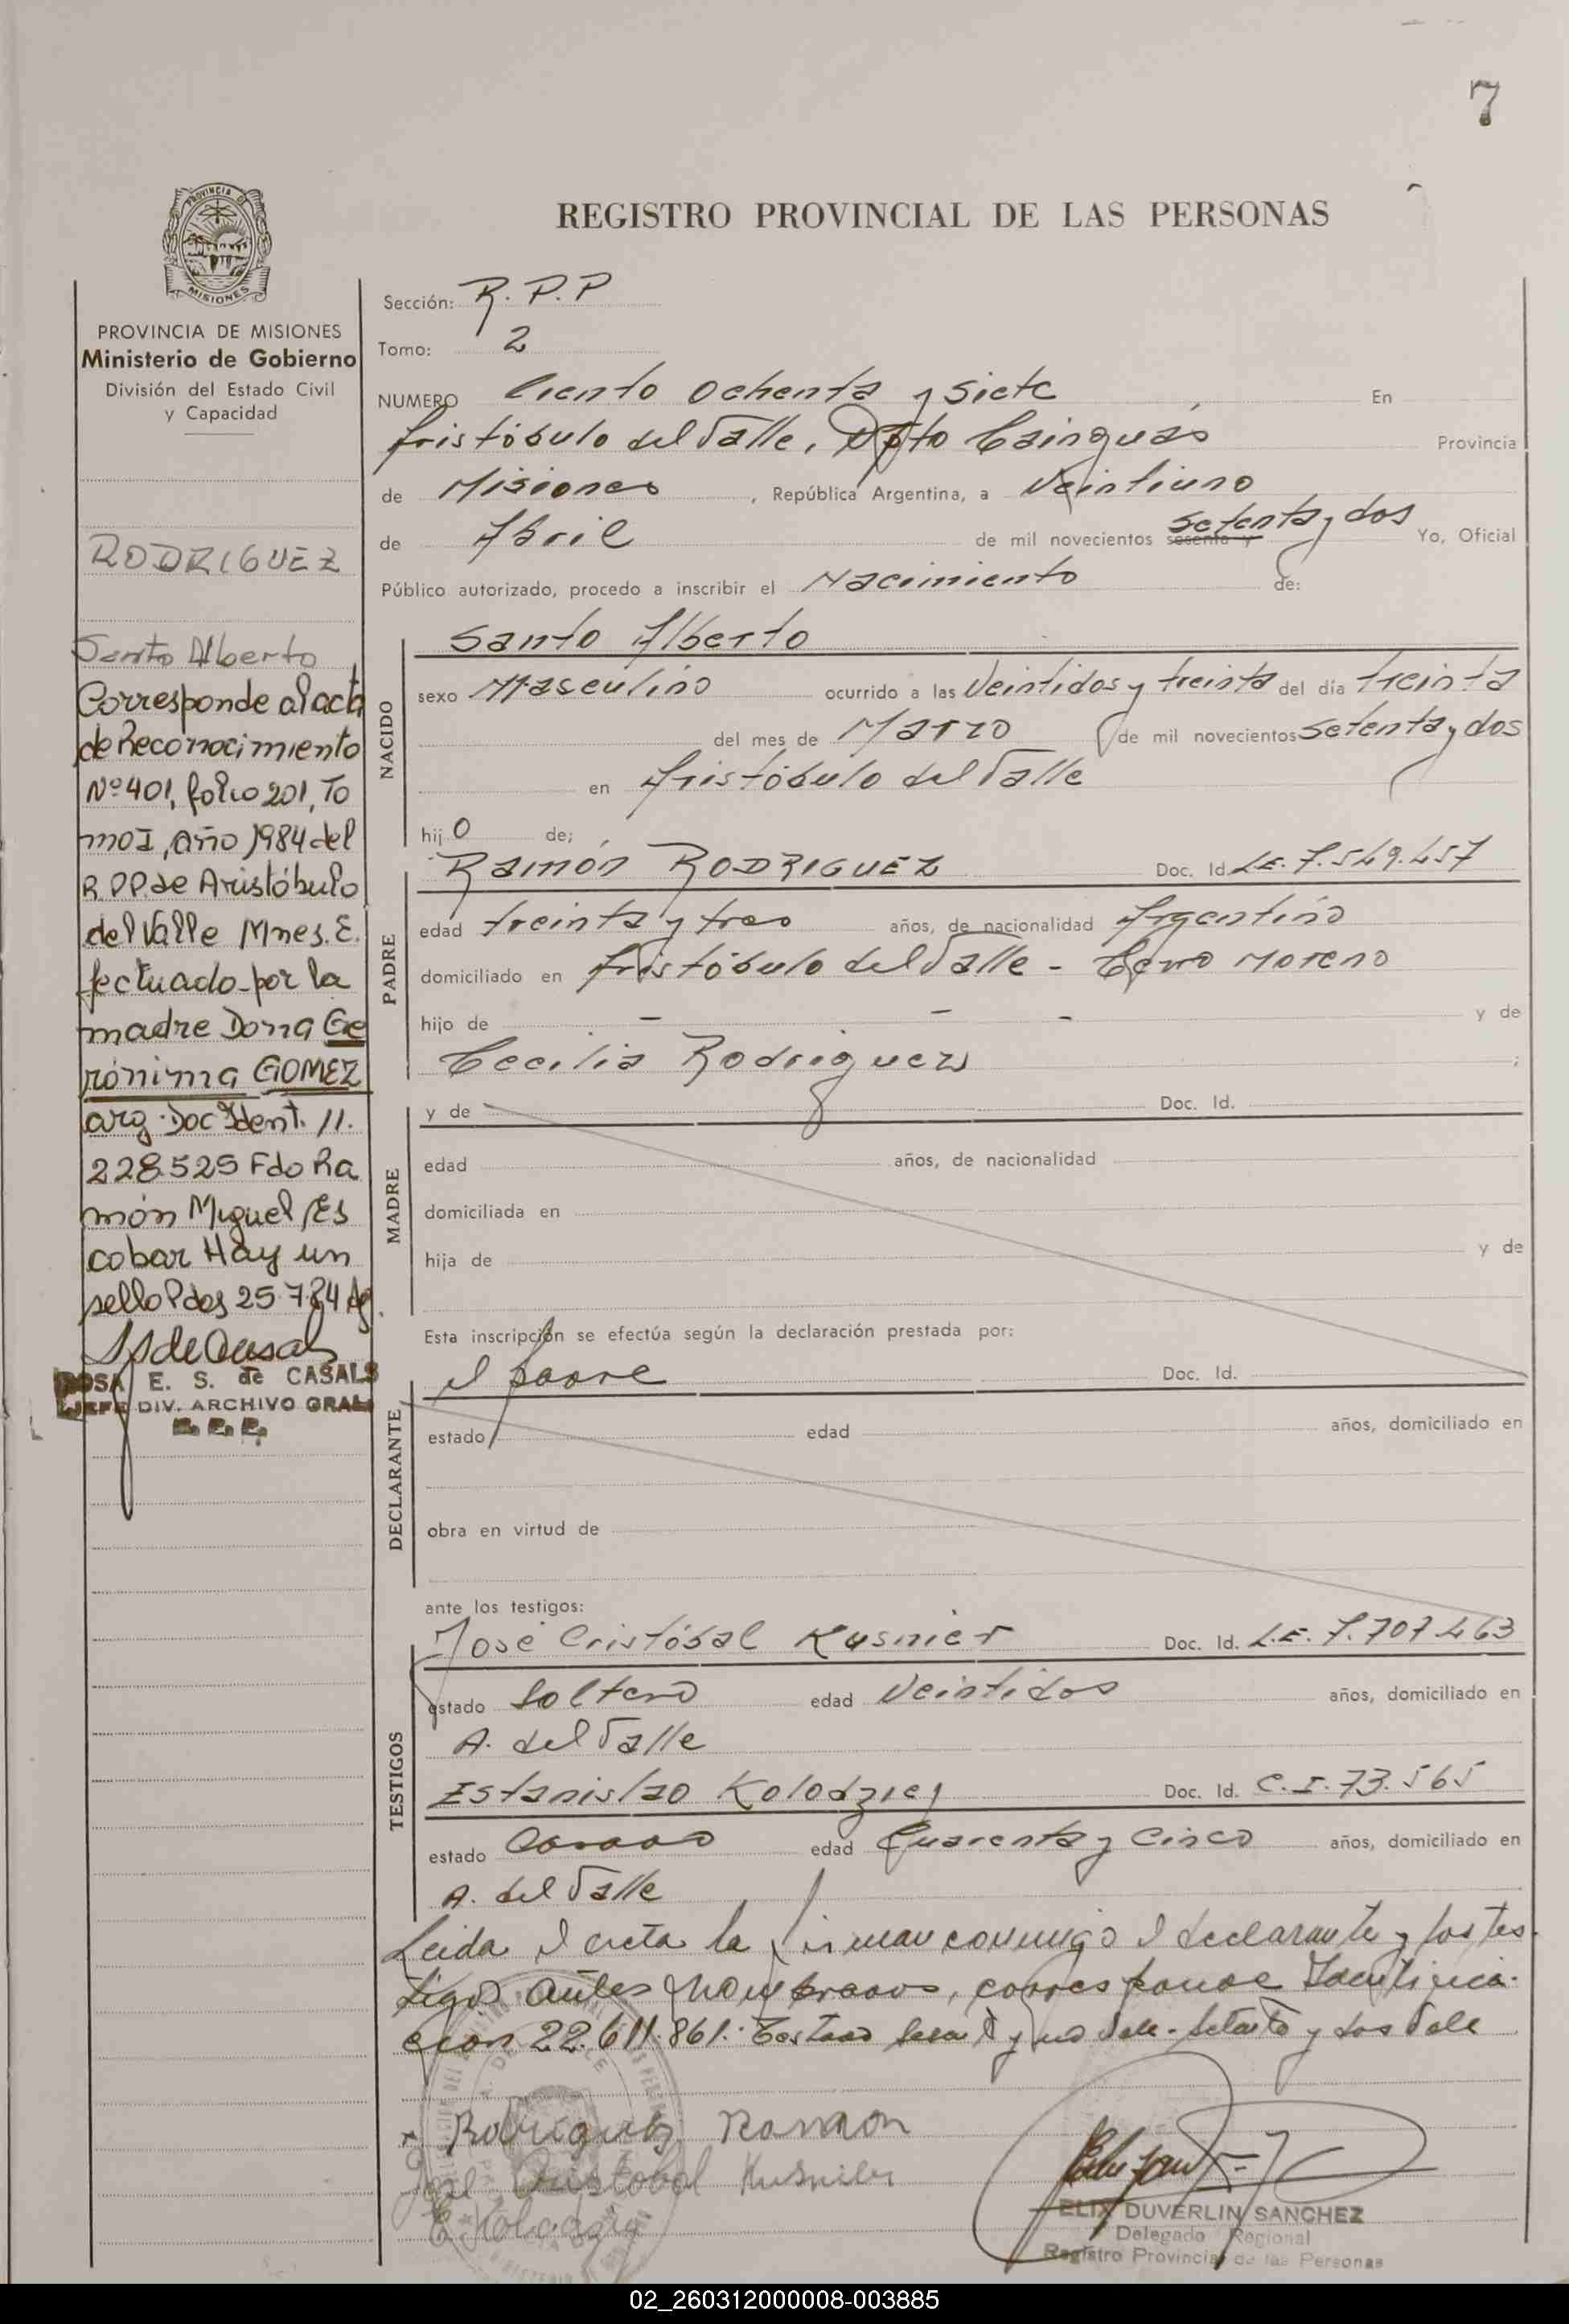 7
REGISTRO PROVINCIAL DE LAS PERSONAS
PROVINCIA DE
MISIONES
PROVINCIA DE MISIONES
Ministerio de Gobierno
División del Estado Civil
y Capacidad
RODRIGUEZ
Santo Alberto
Corresponde al acta
de Reconocimiento
Nº 401, folio 201, To
mo I, año 1984 del
R.P.P. de Aristóbulo
del Valle Mnes. E.
fectuado por la
madre Dorra Ge
rónima GOMEZ
arg. Doc Ident. 11.
228.525 Fdo Ra
món Miguel Es
cobar Hay un
sello Pdas 25.7.84
ROSA E. S. de CASALS
JEFE DIV. ARCHIVO GRAL
R. P. P.
Sección: R. P. P
Tomo: 2
NUMERO Ciento Ochenta y Siete En
Aristóbulo del Valle, Dpto Cainguás Provincia
de Misiones, República Argentina, a Veintiuno
de Abril de mil novecientos sesenta y Setenta y dos Yo, Oficial
Público autorizado, procedo a inscribir el Nacimiento de:
Santo Alberto
NACIDO
sexo Masculino ocurrido a las Veintidos y treinta del día treinta
del mes de Marzo de mil novecientos Setenta y dos
en Aristóbulo del Valle
hijo de;
Ramón RODRIGUEZ Doc. Id. L.E. 7.549.457
PADRE
edad treinta y tres años, de nacionalidad Argentino
domiciliado en Aristóbulo del Valle - Cerro Moreno
hijo de - - - y de
Cecilia Rodriguez ;
MADRE
y de Doc. Id.
edad años, de nacionalidad
domiciliada en
hija de y de
Esta inscripción se efectúa según la declaración prestada por:
el padre Doc. Id.
DECLARANTE
estado edad años, domiciliado en
obra en virtud de
ante los testigos:
José Cristóbal Kusnier Doc. Id. L.E. 7.707.463
TESTIGOS
estado Soltero edad Veintidos años, domiciliado en
A. del Valle
Estanislao Kolodziej Doc. Id. C.I. 73.565
estado Casado edad Cuarenta y Cinco años, domiciliado en
A. del Valle
Leida el acta la firman conmigo el declarante y los tes
tigos antes nombrados, corresponde Identifica-
cion 22.611.861. Testado sesenta y no Vale - Setenta y dos Vale
Rodriguez Ramon
José Cristobal Kusnier
E. Kolodziej
ELIX DUVERLIN SANCHEZ
Delegado Regional
Registro Provincial de las Personas
02_260312000008-003885